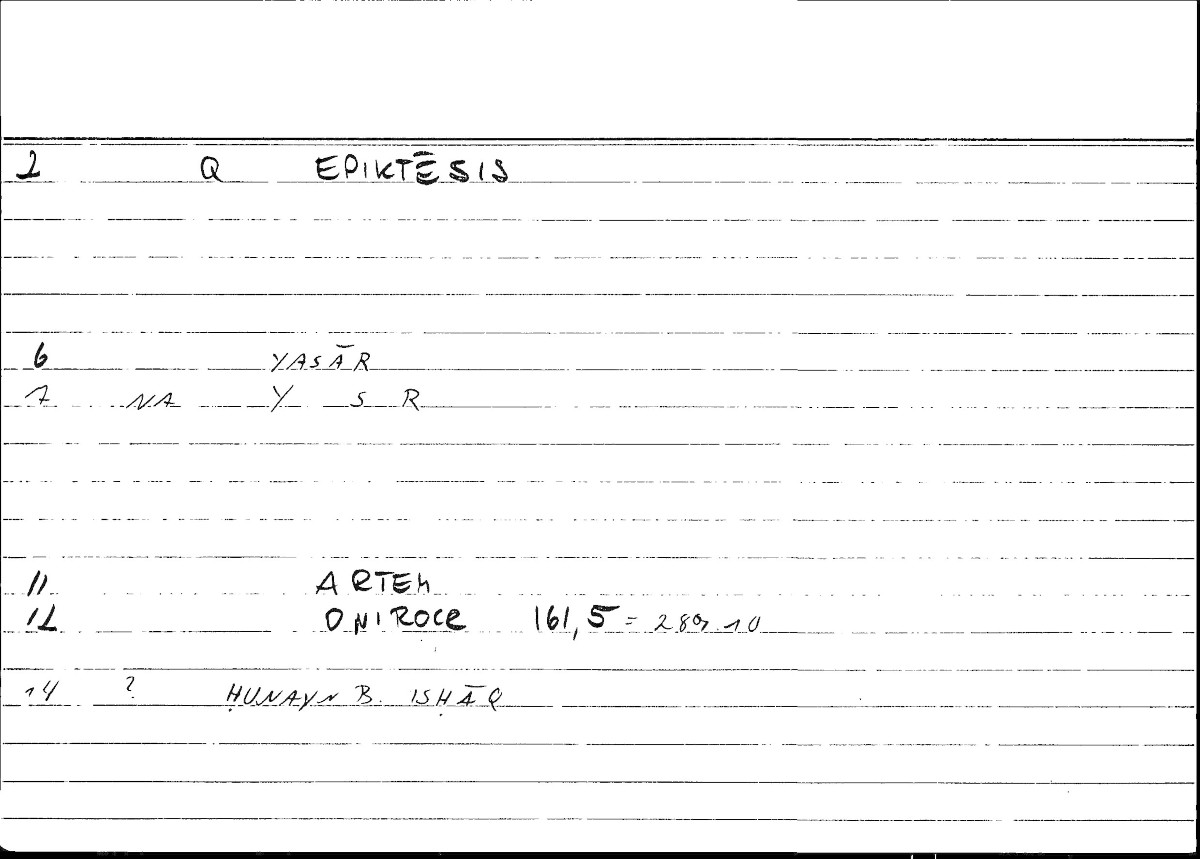 2 Q EPIKTĒSIS
6 YASĀR
7 NA Y S R
11 ARTEM
12 ONIROCR 161,5 = 289.10
14 ? ḤUNAYN B. ISḤĀQ